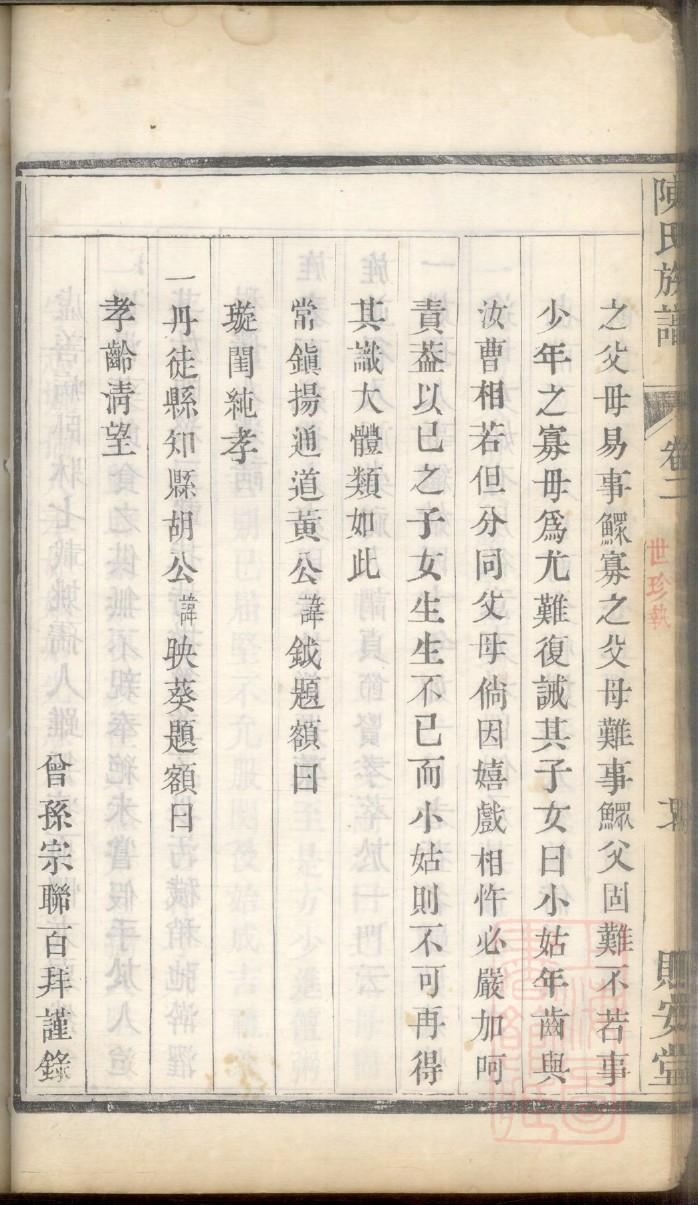 陳氏族譜
卷二
世珍執
則安堂
之父母易事鰥寡之父母難事鰥父固難不若事
少年之寡母爲尤難復誡其子女曰小姑年齒與
汝曹相若但分同父母倘因嬉戲相忤必嚴加呵
責葢以已之子女生生不已而小姑則不可再得
其識大體類如此
常鎭揚通道黃公諱鉞題額曰
璇閨純孝
一丹徒縣知縣胡公諱映葵題額曰
孝齡淸望
曾孫宗聯百拜謹錄